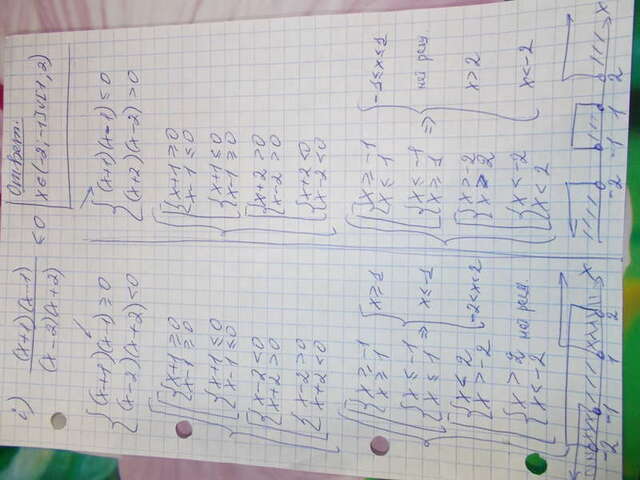 i) (x+1)(x-1) / (x-2)(x+2) ≤ 0
Ответ:
x∈(-2,-1]∪[1,2)
{(x+1)(x-1)≥0
(x-2)(x+2)<0
{x+1≥0
x-1≥0
{x+1≤0
x-1≤0
{x-2<0
x+2>0
{x-2>0
x+2<0
{x≥-1
x≥1
x≥1
{x≤-1
x≤1
=> x≤-1
{x<2
x>-2
-2<x<2
{x>2
x<-2
нет реш
-2 -1 1 2 x
{(x+1)(x-1)≤0
(x+2)(x-2)>0
{x+1≥0
x-1≤0
{x+1≤0
x-1≥0
{x+2>0
x-2>0
{x+2<0
x-2<0
{x≥-1
x≤1
-1≤x≤1
{x≤-1
x≥1
=> нет реш
{x>-2
x>2
x>2
{x<-2
x<2
x<-2
-2 -1 1 2 x